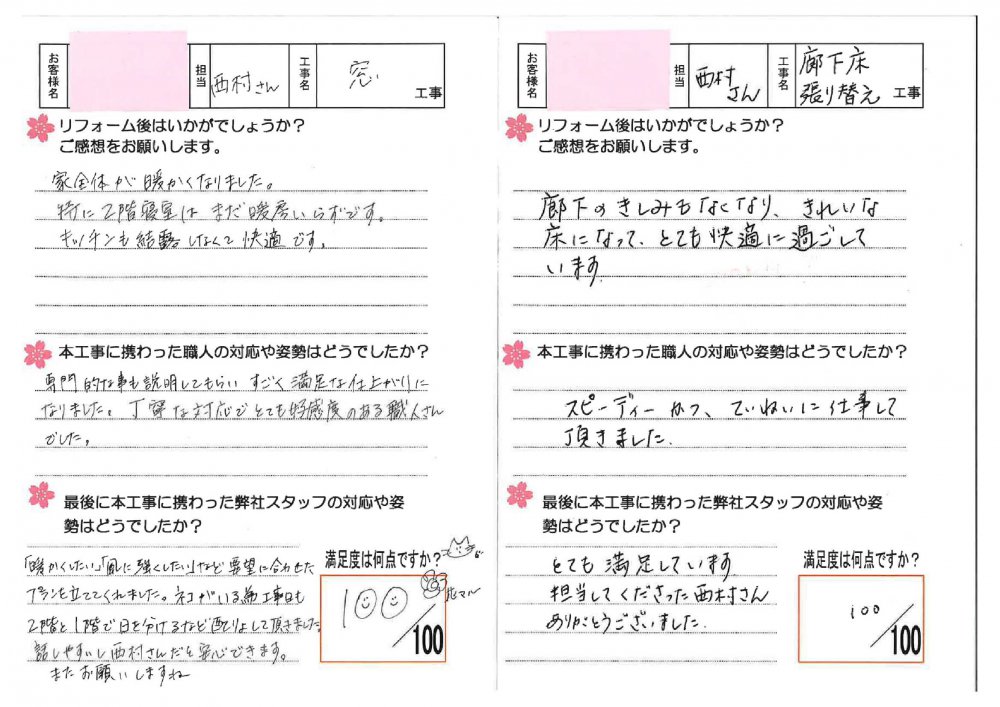 お客様名
担当
西村さん
工事名
窓
工事
リフォーム後はいかがでしょうか?
ご感想をお願いします。
家全体が暖かくなりました。
特に2階寝室はまだ暖房いらずです。
キッチンも結露しなくて快適です。
本工事に携わった職人の対応や姿勢はどうでしたか?
専門的な事も説明してもらい すごく満足な仕上がりに
なりました。丁寧な対応でとても好感度のある職人さん
でした。
最後に本工事に携わった弊社スタッフの対応や姿
勢はどうでしたか?
「暖かくしたい」「風に強くしたい」など要望に合わせた
プランを立ててくれました。ネコがいる為工事日も
2階と1階で日を分けるなど配りょして頂きました
話しやすいし西村さんだと安心できます。
またお願いしますね
満足度は何点ですか?
花マル
100
/100
お客様名
担当
西村
さん
工事名
廊下床
張り替え
工事
リフォーム後はいかがでしょうか?
ご感想をお願いします。
廊下のきしみもなくなり、きれいな
床になって、とても快適に過ごして
います
本工事に携わった職人の対応や姿勢はどうでしたか?
スピーディーかつ、ていねいに仕事して
頂きました.
最後に本工事に携わった弊社スタッフの対応や姿
勢はどうでしたか?
とても満足しています
担当してくださった西村さん
ありがとうございました.
満足度は何点ですか?
100
/100